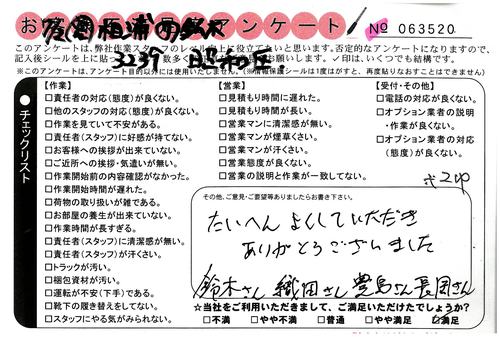 お客様アンケート
№ 063520
このアンケートは、弊社作業スタッフのレベル向上に役立てたいと思います。否定的なアンケートになりますので、
記入後シールを上に貼っ
お願いします。✓印は、いくつでも結構です。
※このアンケートは、アンケート目的以外には使用いたしません。(※情報保護シールは1度はがすと、再度貼りなおすことはできません)
チェックリスト
【作業】
□責任者の対応(態度)が良くない。
□他のスタッフの対応(態度)が良くない。
□作業を見ていて不安がある。
□責任者(スタッフ)に好感が持てない。
□お客様への挨拶が出来ていない。
□ご近所への挨拶・気遣いが無い。
□作業開始前の内容確認がなかった。
□作業開始時間が遅れた。
□荷物の取り扱いが雑である。
□お部屋の養生が出来ていない。
□作業時間が長すぎる。
□責任者(スタッフ)に清潔感が無い。
□責任者(スタッフ)が汗くさい。
□トラックが汚い。
□梱包資材が汚い。
□運転が不安(下手)である。
□靴下の履き替えをしてない。
□スタッフにやる気がみられない。
【営業】
□見積もり時間に遅れた。
□見積もり時間が長い。
□営業マンに清潔感が無い。
□営業マンが煙草くさい。
□営業マンが汗くさい。
□営業態度が良くない。
□営業の説明と作業が一致してない。
【受付・その他】
□電話の対応が良くない。
□オプション業者の説明
・作業が良くない。
□オプション業者の対応
(態度)が良くない。
その他、ご意見・ご要望等ありましたらお書き下さい。
たいへん よくしていただき
ありがとうございました
鈴木さん 織田さん 豊島さん 長岡さん
★当社をご利用いただきまして、ご満足いただけたでしょうか?
□不満 □やや不満 □普通 □やや満足 ☑満足